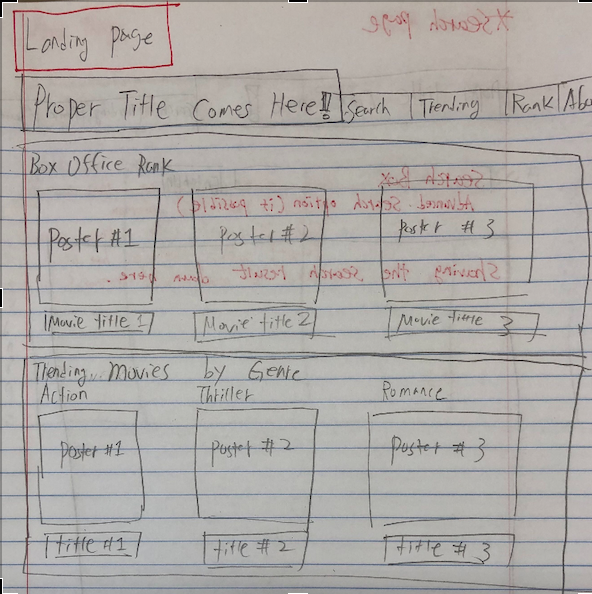 Landing page
*Search page
Proper Title Comes Here!! Search Trending Rank Abo
Box Office Rank
Search Box
Advanced Search option (if possible)
Poster #1 Poster #2 Poster #3
Showing the search result down here.
Movie title 1 Movie title 2 Movie title 3
Trending... Movies by Genre
Action Thriller Romance
Poster #1 Poster #2 Poster #3
title #1 title #2 title #3